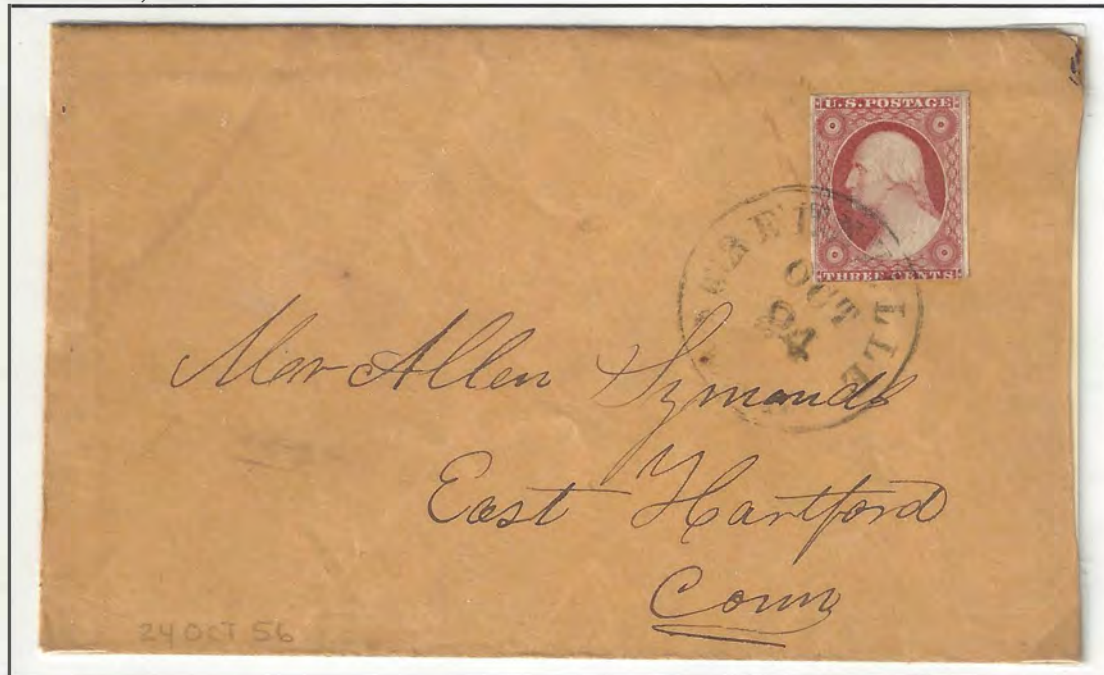 U.S. POSTAGE
THREE CENTS
OCT
24
Allen Symonds
East Hartford
Conn
24 OCT 56